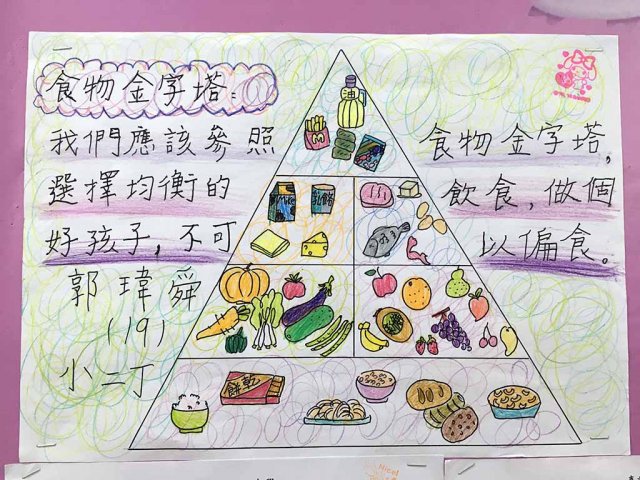 食物金字塔:
我們應該參照食物金字塔,
選擇均衡的飲食,做個
好孩子,不可以偏食。
郭瑋舜
(19)
小二丁
油
M
乳酪
餅乾
Nice!